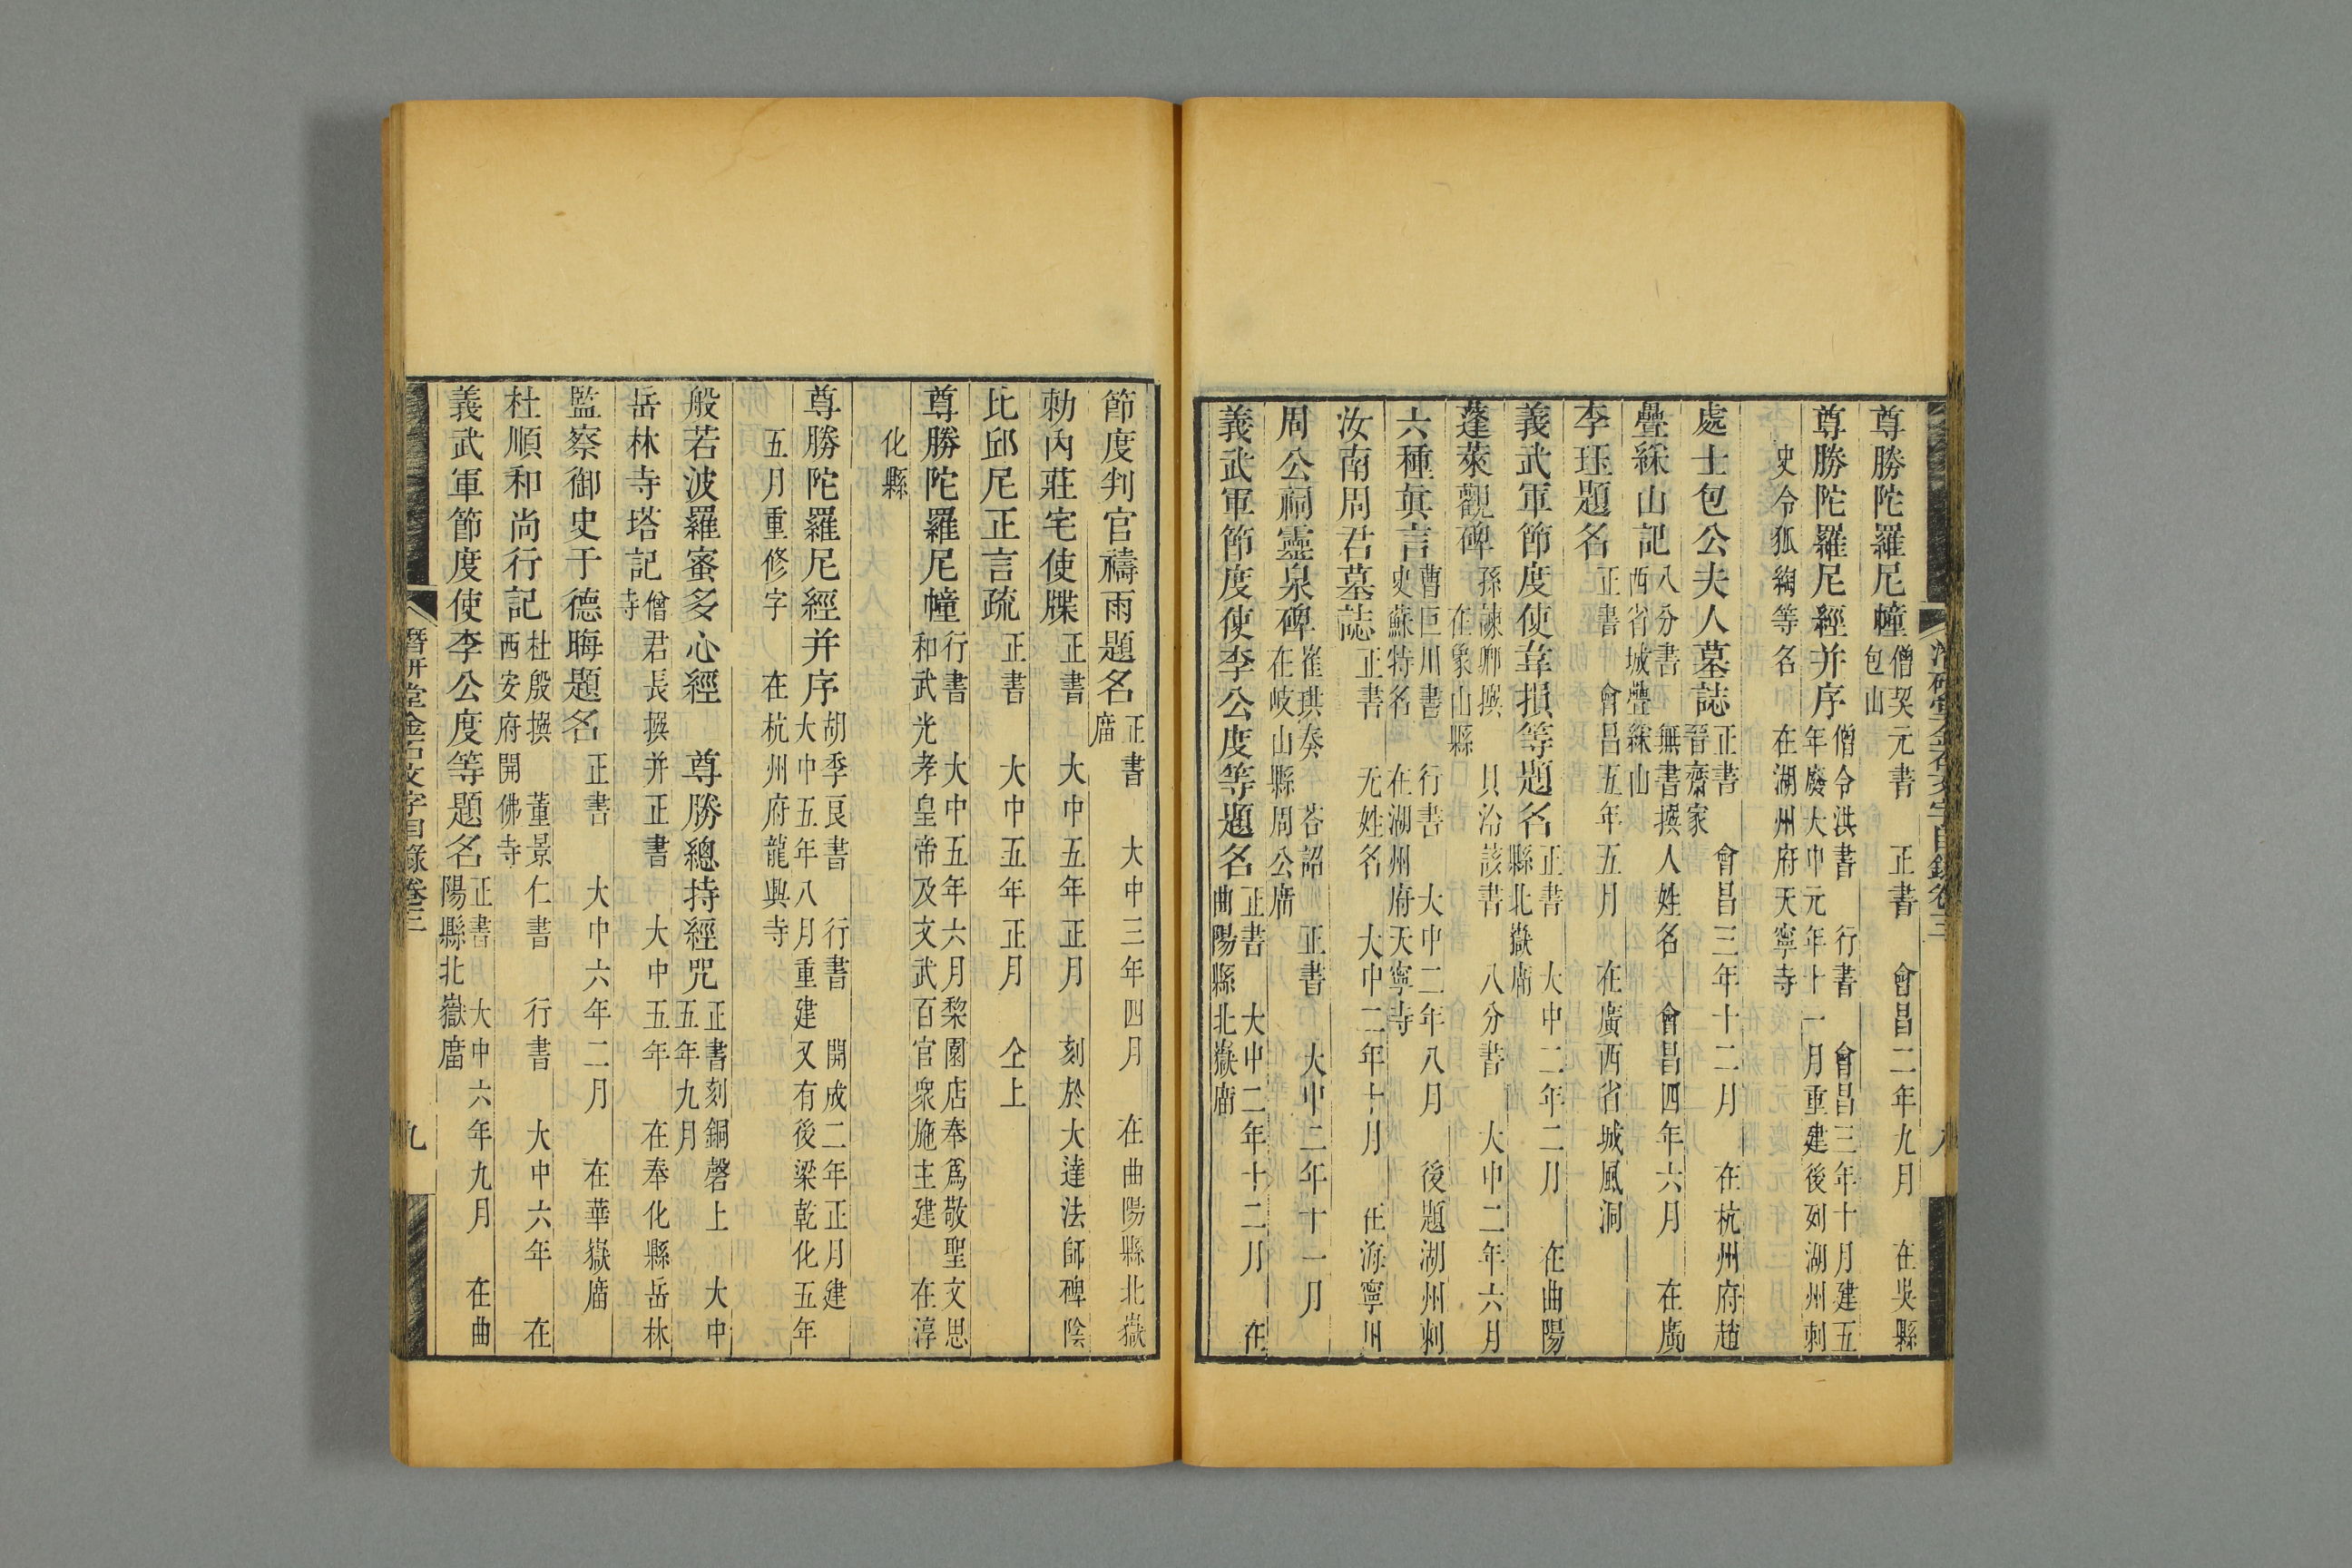 尊勝陀羅尼幢僧契元書　正書　會昌二年九月　在吳縣
包山
尊勝陀羅尼經并序僧令洪書　行書　會昌三年十月建五
年廢大中元年十一月重建後列湖州刺
史令狐綯等名　在湖州府天寧寺
處士包公夫人墓誌正書　會昌三年十二月　在杭州府趙
晉齋家
疊綵山記八分書　無書撰人姓名　會昌四年六月　在廣
西省城疊綵山
李珏題名正書　會昌五年五月　在廣西省城風洞
義武軍節度使韋損等題名正書　大中二年二月　在曲陽
縣北嶽廟
蓬萊觀碑孫諫卿撰　貝泠該書　八分書　大中二年六月
在象山縣
六種真言曹巨川書　行書　大中二年八月　後題湖州刺
史蘇特名　在湖州府天寧寺
汝南周君墓誌正書　无姓名　大中二年十月　在海寧州
周公祠靈泉碑崔珙奏　荅詔　正書　大中二年十一月
在岐山縣周公廟
義武軍節度使李公度等題名正書　大中二年十二月　在
曲陽縣北嶽廟
潛研堂金石文字目錄卷三　八
節度判官禱雨題名正書　大中三年四月　在曲陽縣北嶽
廟
勑內莊宅使牒正書　大中五年正月　刻於大達法師碑陰
比邱尼正言疏正書　大中五年正月　仝上
尊勝陀羅尼幢行書　大中五年六月棃園店奉爲敬聖文思
和武光孝皇帝及文武百官衆施主建　在淳
化縣
尊勝陀羅尼經并序胡季良書　行書　開成二年正月建
大中五年八月重建　又有後梁乾化五年
五月重修字　在杭州府龍興寺
般若波羅蜜多心經　尊勝總持經咒正書刻銅磬上　大中
五年九月
岳林寺塔記僧君長撰并正書　大中五年　在奉化縣岳林
寺
監察御史于德晦題名正書　大中六年二月　在華嶽廟
杜順和尚行記杜殷撰　董景仁書　行書　大中六年　在
西安府開佛寺
義武軍節度使李公度等題名正書　大中六年九月　在曲
陽縣北嶽廟
潛研堂金石文字目錄卷三　九